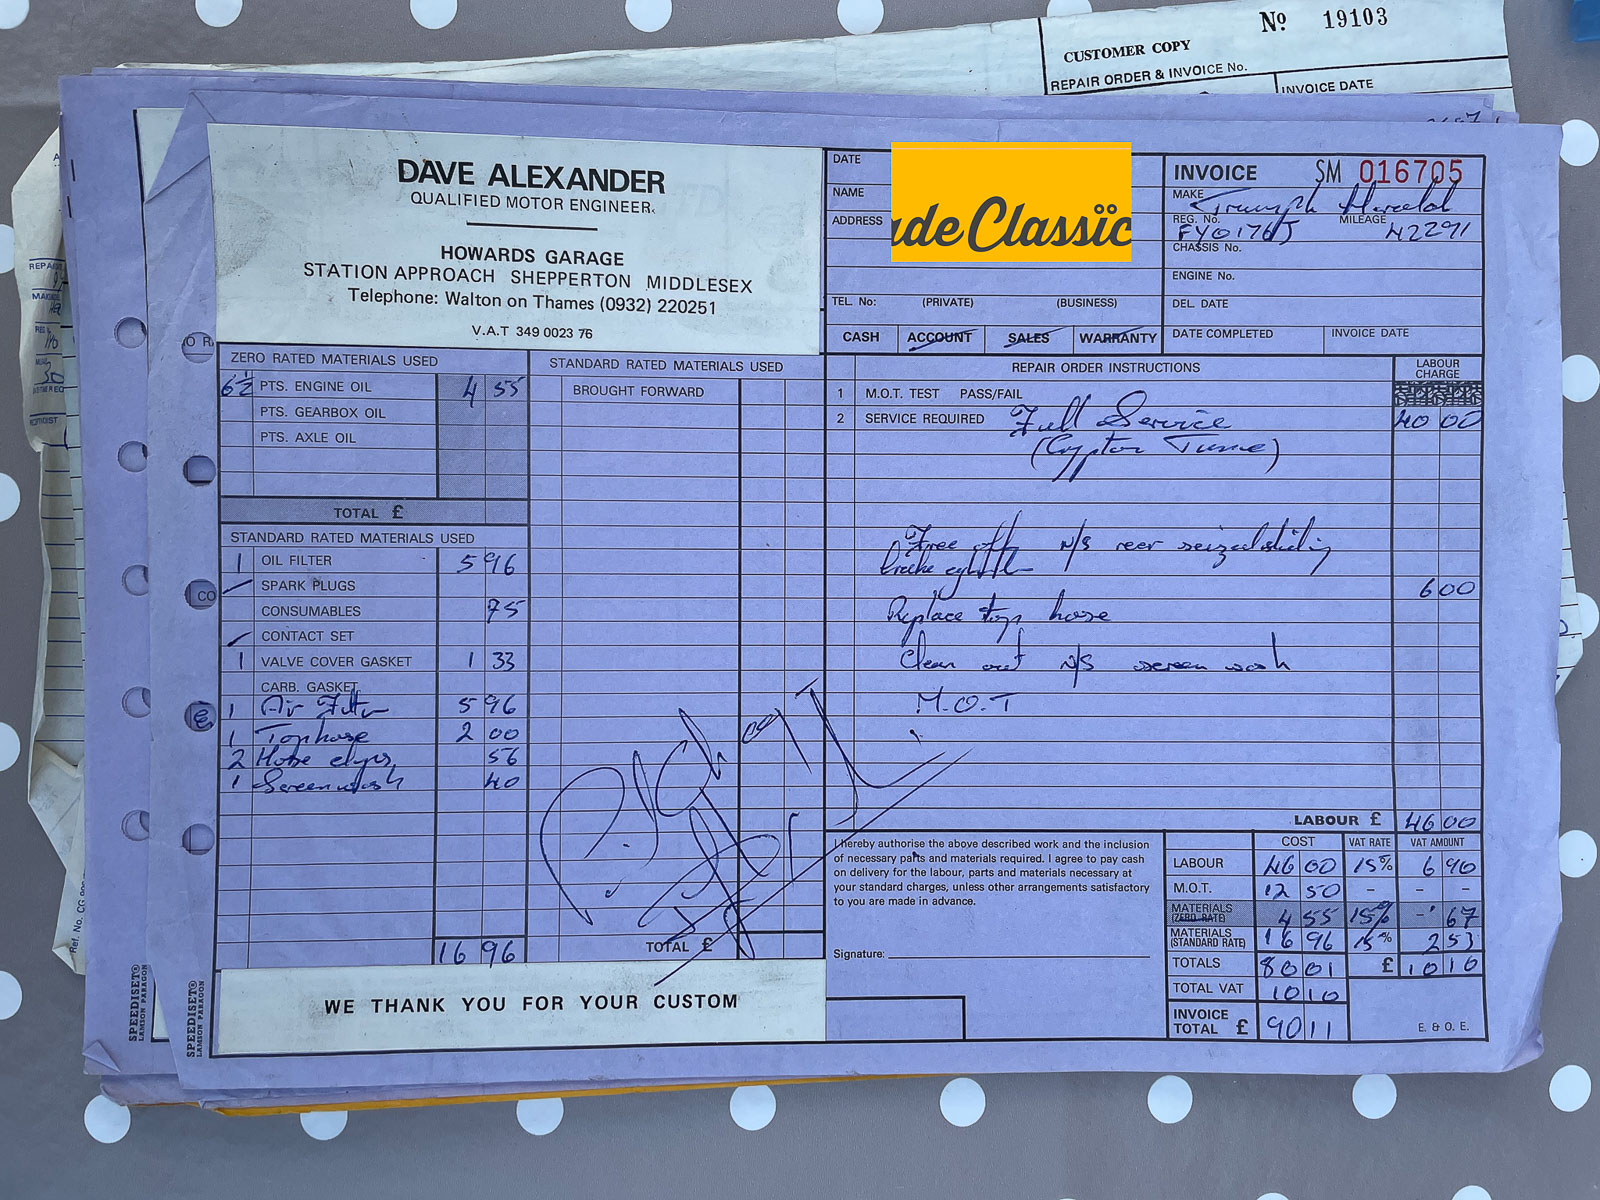 Nº 19103
CUSTOMER COPY
REPAIR ORDER & INVOICE No.
INVOICE DATE
DAVE ALEXANDER
QUALIFIED MOTOR ENGINEER.
HOWARDS GARAGE
STATION APPROACH SHEPPERTON MIDDLESEX
Telephone: Walton on Thames (0932) 220251
V.A.T 349 0023 76
DATE
NAME
ADDRESS
ade Classic
TEL. No: (PRIVATE) (BUSINESS)
CASH ACCOUNT SALES WARRANTY
INVOICE SM 016705
MAKE Triumph Herald
REG. No. MILEAGE
FYO176J 42291
CHASSIS No.
ENGINE No.
DEL. DATE
DATE COMPLETED INVOICE DATE
ZERO RATED MATERIALS USED
6½ PTS. ENGINE OIL 4 55
PTS. GEARBOX OIL
PTS. AXLE OIL
TOTAL £
STANDARD RATED MATERIALS USED
1 OIL FILTER 5 96
SPARK PLUGS
CONSUMABLES 75
CONTACT SET
1 VALVE COVER GASKET 1 33
CARB. GASKET
1 Air Filter 5 96
1 Top hose 2 00
2 Hose clips 56
1 Screenwash 40
16 96
STANDARD RATED MATERIALS USED
BROUGHT FORWARD
TOTAL £
REPAIR ORDER INSTRUCTIONS LABOUR CHARGE
1 M.O.T. TEST PASS/FAIL
2 SERVICE REQUIRED Full Service 40 00
(Crypton Tune)
Free off N/S rear seized sliding
brake cylinder
6 00
Replace top hose
Clean out N/S screen wash
M.O.T
LABOUR £ 46 00
I hereby authorise the above described work and the inclusion
of necessary parts and materials required. I agree to pay cash
on delivery for the labour, parts and materials necessary at
your standard charges, unless other arrangements satisfactory
to you are made in advance.
Signature:
COST VAT RATE VAT AMOUNT
LABOUR 46 00 15% 6 90
M.O.T. 12 50 - - -
MATERIALS (ZERO RATE) 4 55 15% - 67
MATERIALS (STANDARD RATE) 16 96 15% 2 53
TOTALS 80 01 £ 10 10
TOTAL VAT 10 10
INVOICE TOTAL £ 90 11
E. & O. E.
WE THANK YOU FOR YOUR CUSTOM
SPEEDISET®
LAMSON PARAGON
SPEEDISET®
LAMSON PARAGON